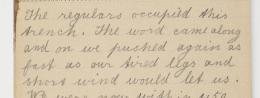 The regulars occupied this
trench. The word came along
and on we pushed again as
fast as our tired legs and
short wind would let us.
We were now